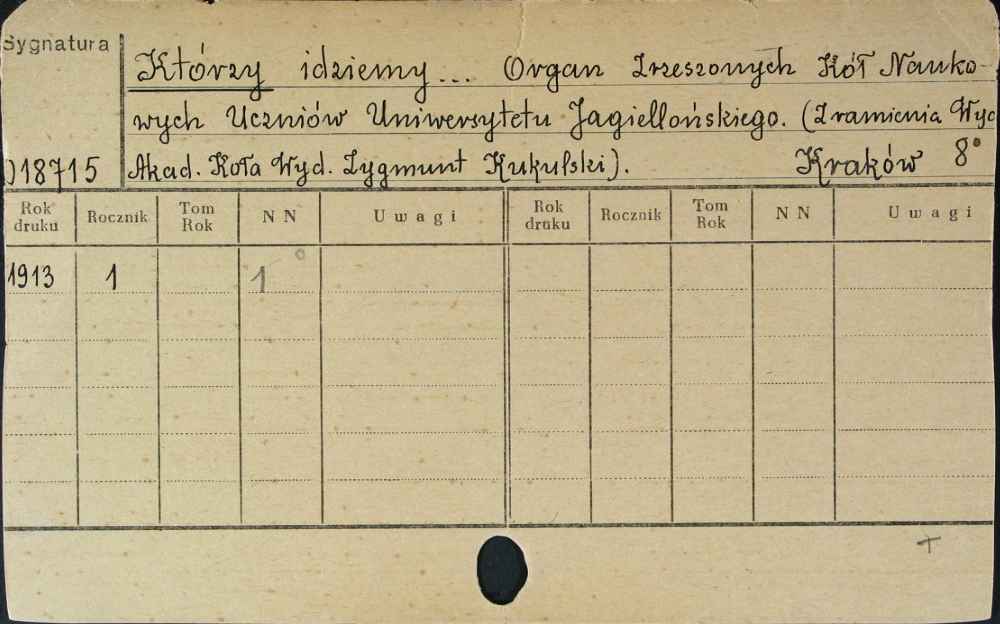 Sygnatura
Którzy idziemy... Organ Zrzeszonych Kół Nauko-
wych Uczniów Uniwersytetu Jagiellońskiego. (Z ramienia Wyd
18715 Akad. Koła Wyd. Zygmunt Kukulski). Kraków 8°
Rok druku Rocznik Tom Rok NN Uwagi Rok druku Rocznik Tom Rok NN Uwagi
1913 1 1